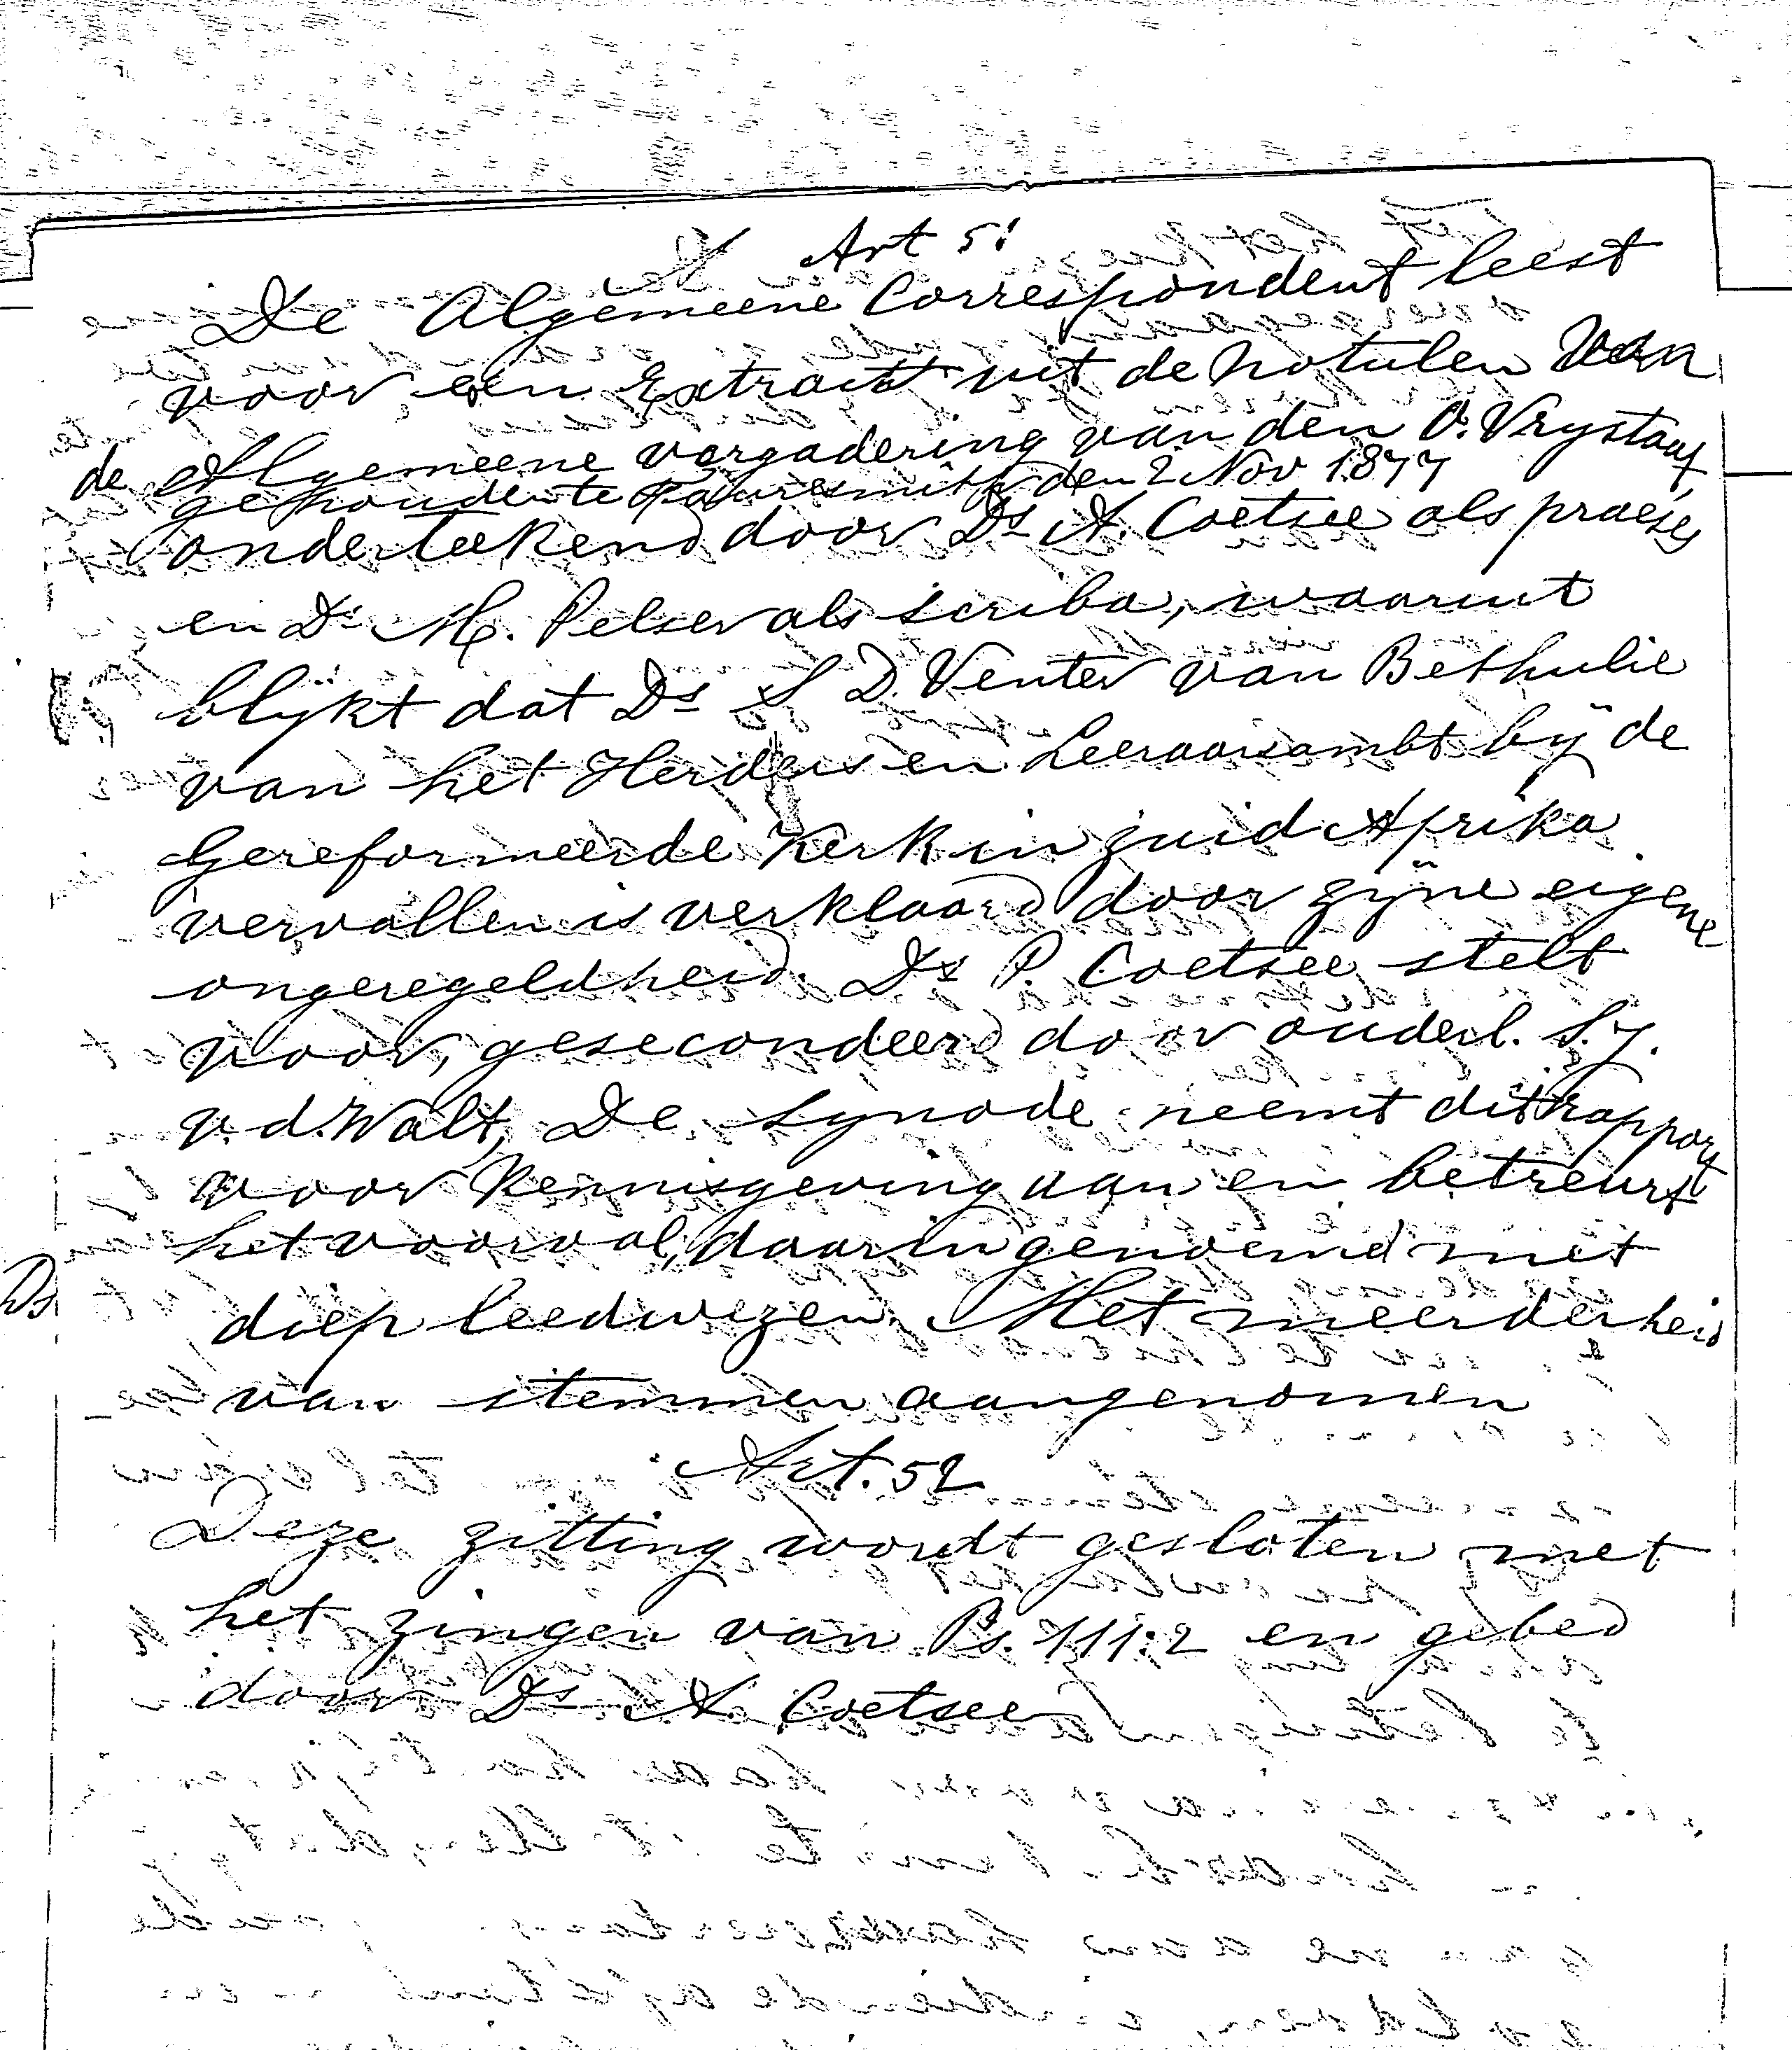 Art 51
De Algemeene Correspondent leest
voor een Extract uit de notulen van
de Algemeene vergadering van den O. Vrystaat
gehouden te Fauresmith den 2 Nov 1877
onderteekend door Ds A. Coetsee als praeses
en Ds M. Pelser als scriba, waaruit
blijkt dat Ds S D. Venter van Bethulie
van het Herders en Leeraarsambt bij de
Gereformeerde Kerk in zuid Afrika
vervallen is verklaard door zijne eigene
ongeregeldheid. Ds P. Coetsee stelt
voor, gesecondeerd door ouderl. S.J.
v.d. Walt, De synode neemt dit rapport
voor kennisgeving aan en betreurt
het voorval, daarin genoemd met
diep leedwezen. Met meerderheid
van stemmen aangenomen
Art. 52
Deze zitting wordt gesloten met
het zingen van Ps. 111:2 en gebed
door Ds A. Coetsee